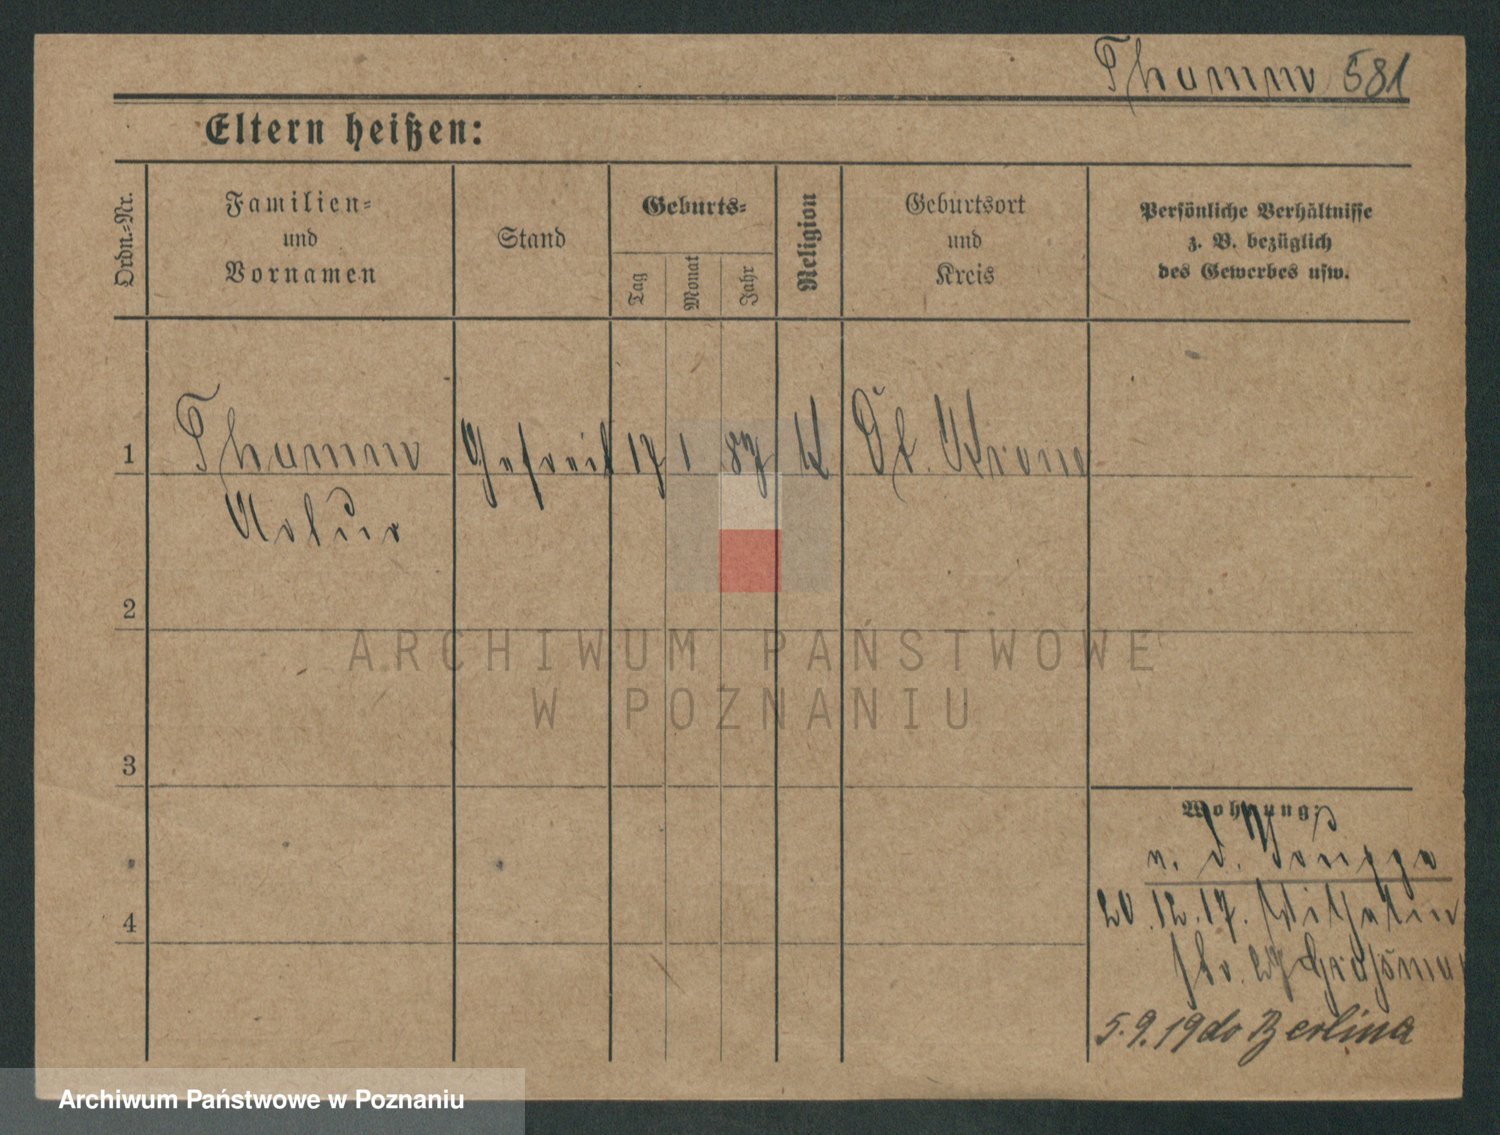 Thumm 581
Eltern heißen:
Ordn.-Nr.
Familien-
und
Vornamen
Stand
Geburts-
Tag
Monat
Jahr
Religion
Geburtsort
und
Kreis
Persönliche Verhältnisse
z. B. bezüglich
des Gewerbes usw.
1
Thumm
Gefreit 17 1 87 K Dt. Krone
Artur
2
3
4
Wohnung:
v. d.
20.12.17. Wilhelm
str. 27
5.9.19 do Berlina
ARCHIWUM PAŃSTWOWE
W POZNANIU
Archiwum Państwowe w Poznaniu